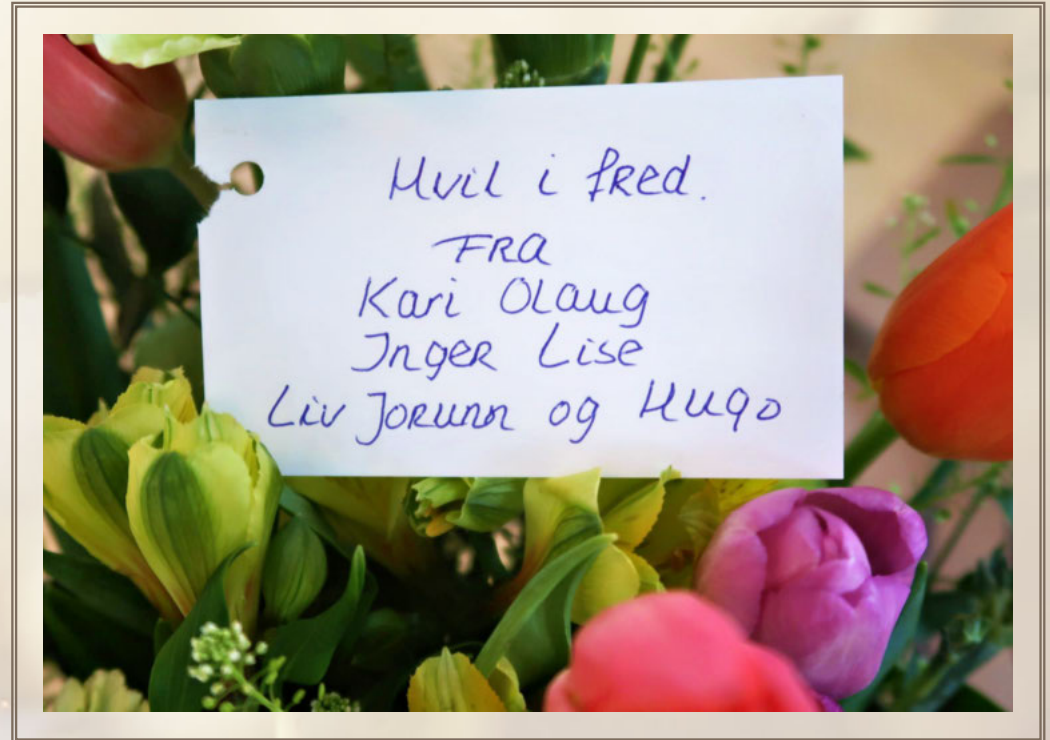 Hvil i fred.
FRA
Kari Olaug
Inger Lise
Liv Jorunn og Hugo